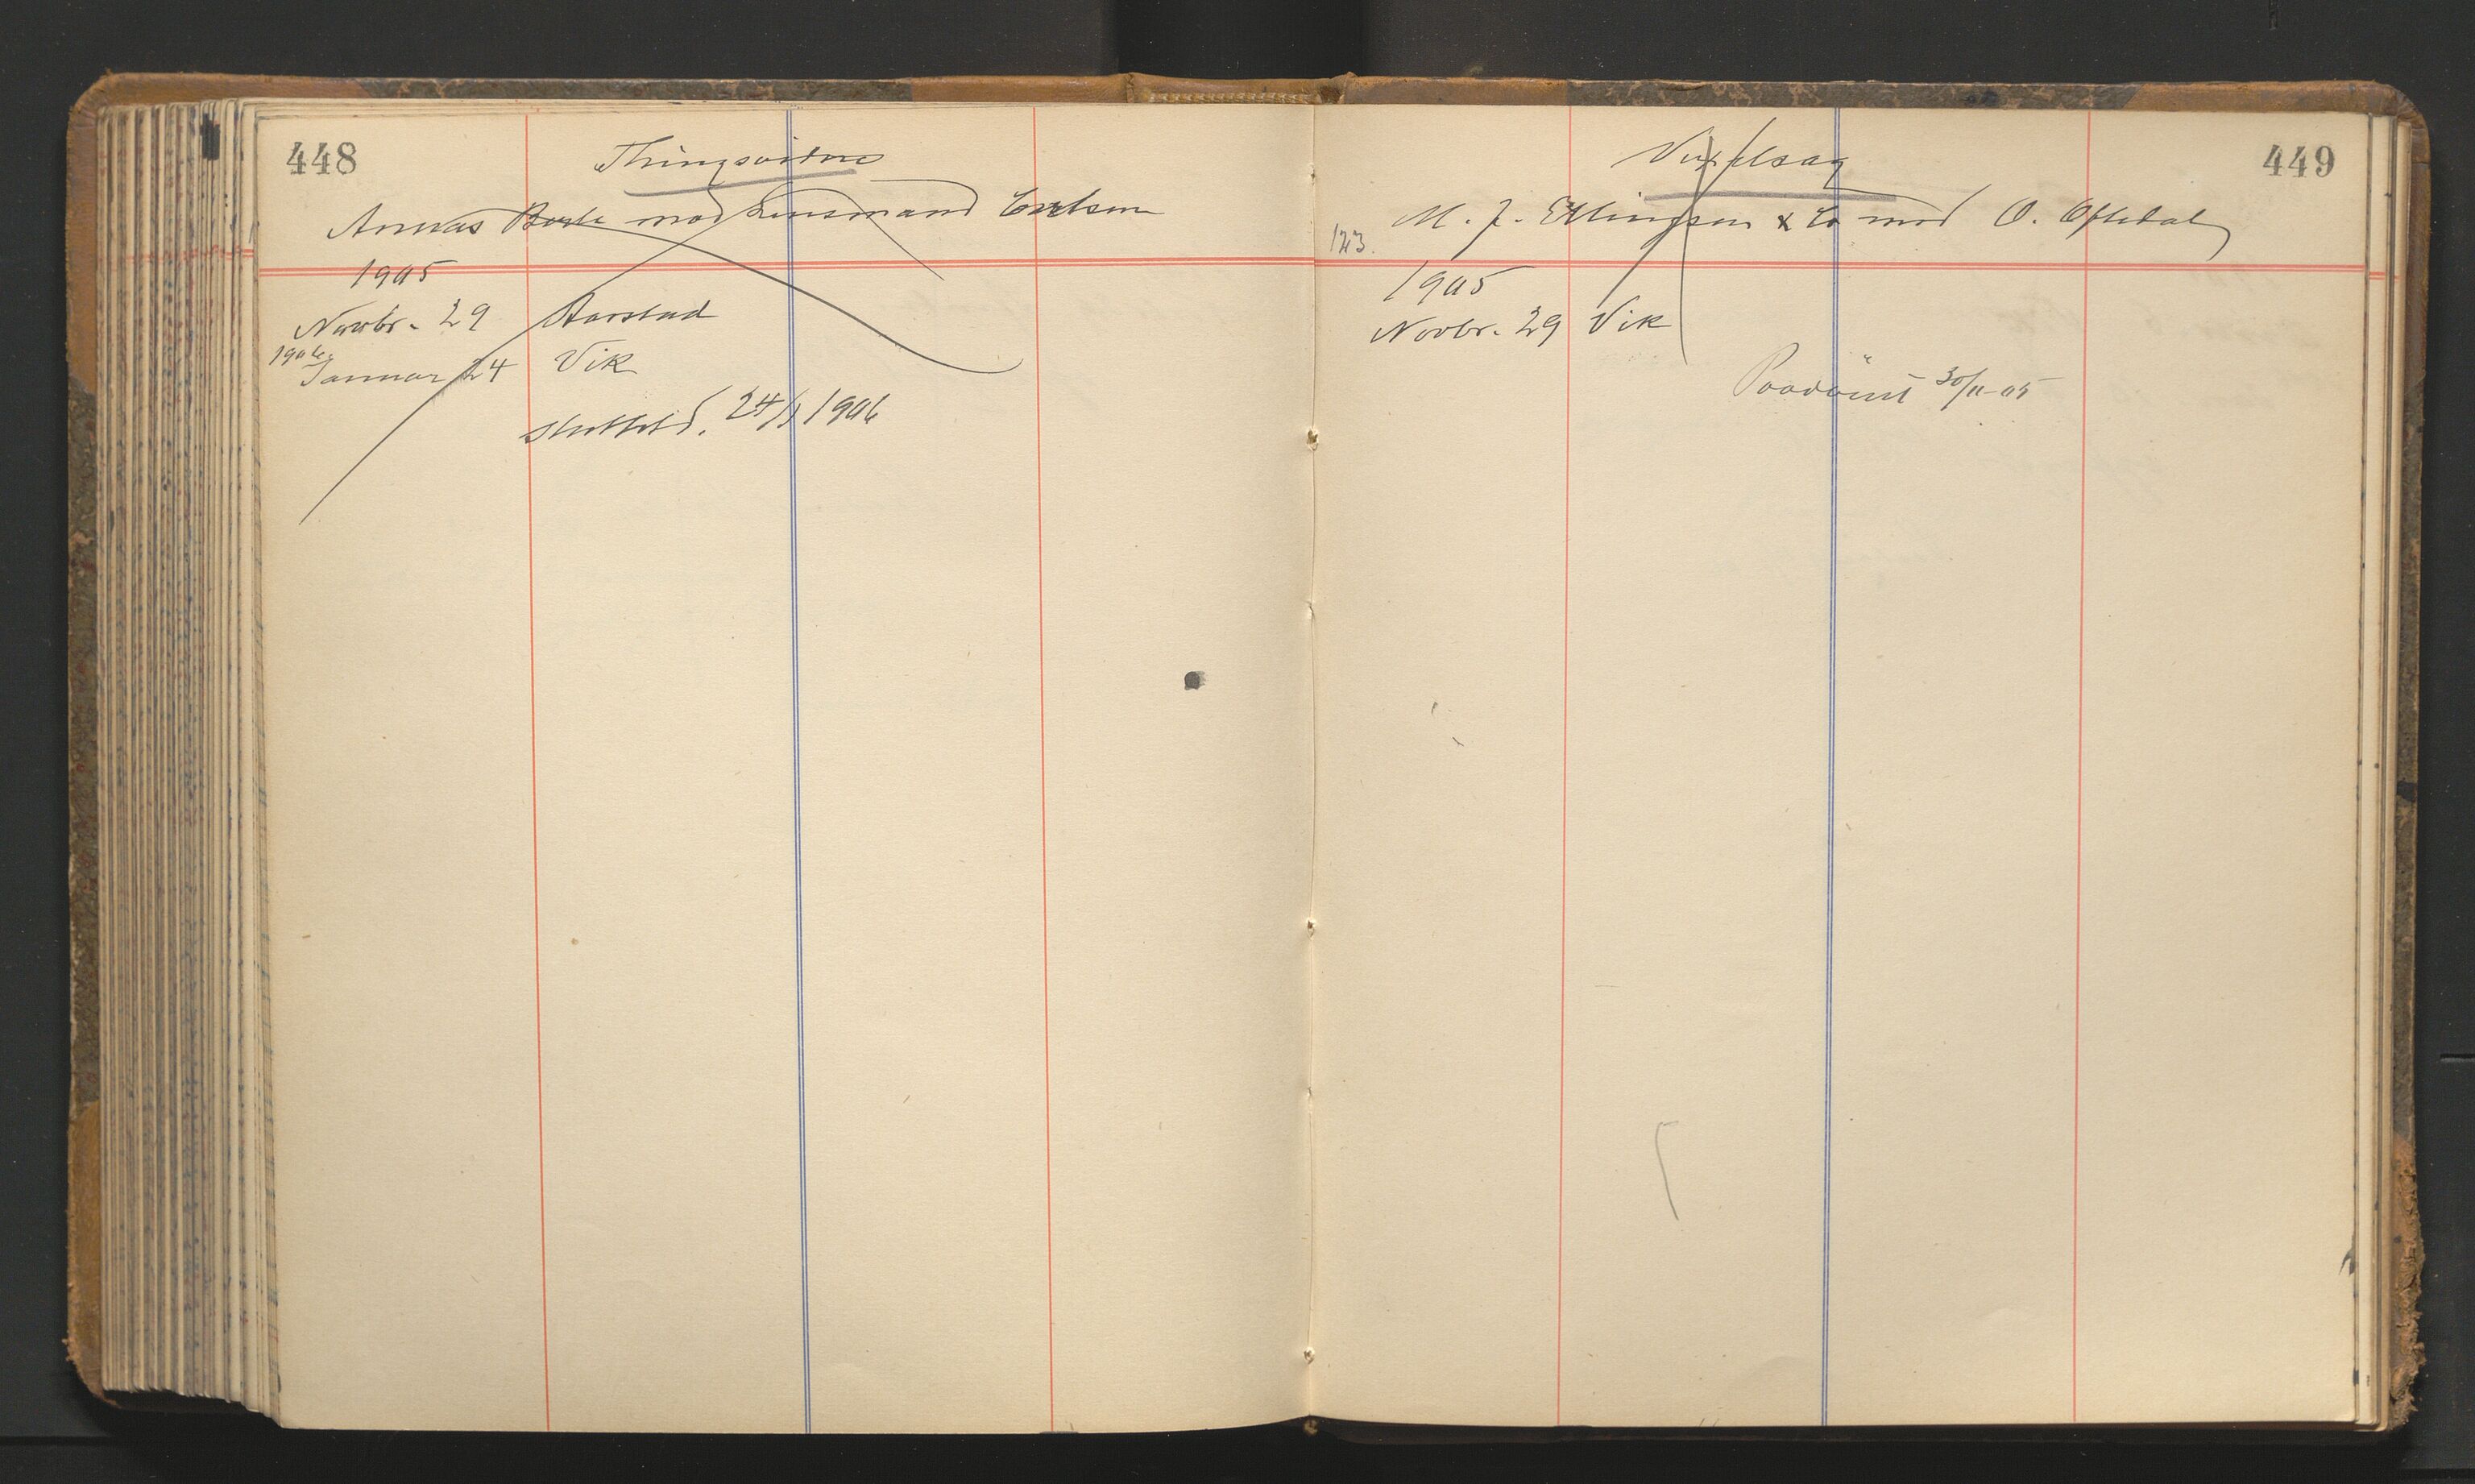 448
Thingsvidne
Annas Berle mod Lensmand Carlsen
1905
Novbr. 29 Aarstad
1906
Januar 24 Vik
sluttet. 24/1 1906
449
Vexelsag
123.
M. J. Ellingsen & Co mod O. Oftedal
1905
Novbr. 29 Vik
Paadömt 30/11-05